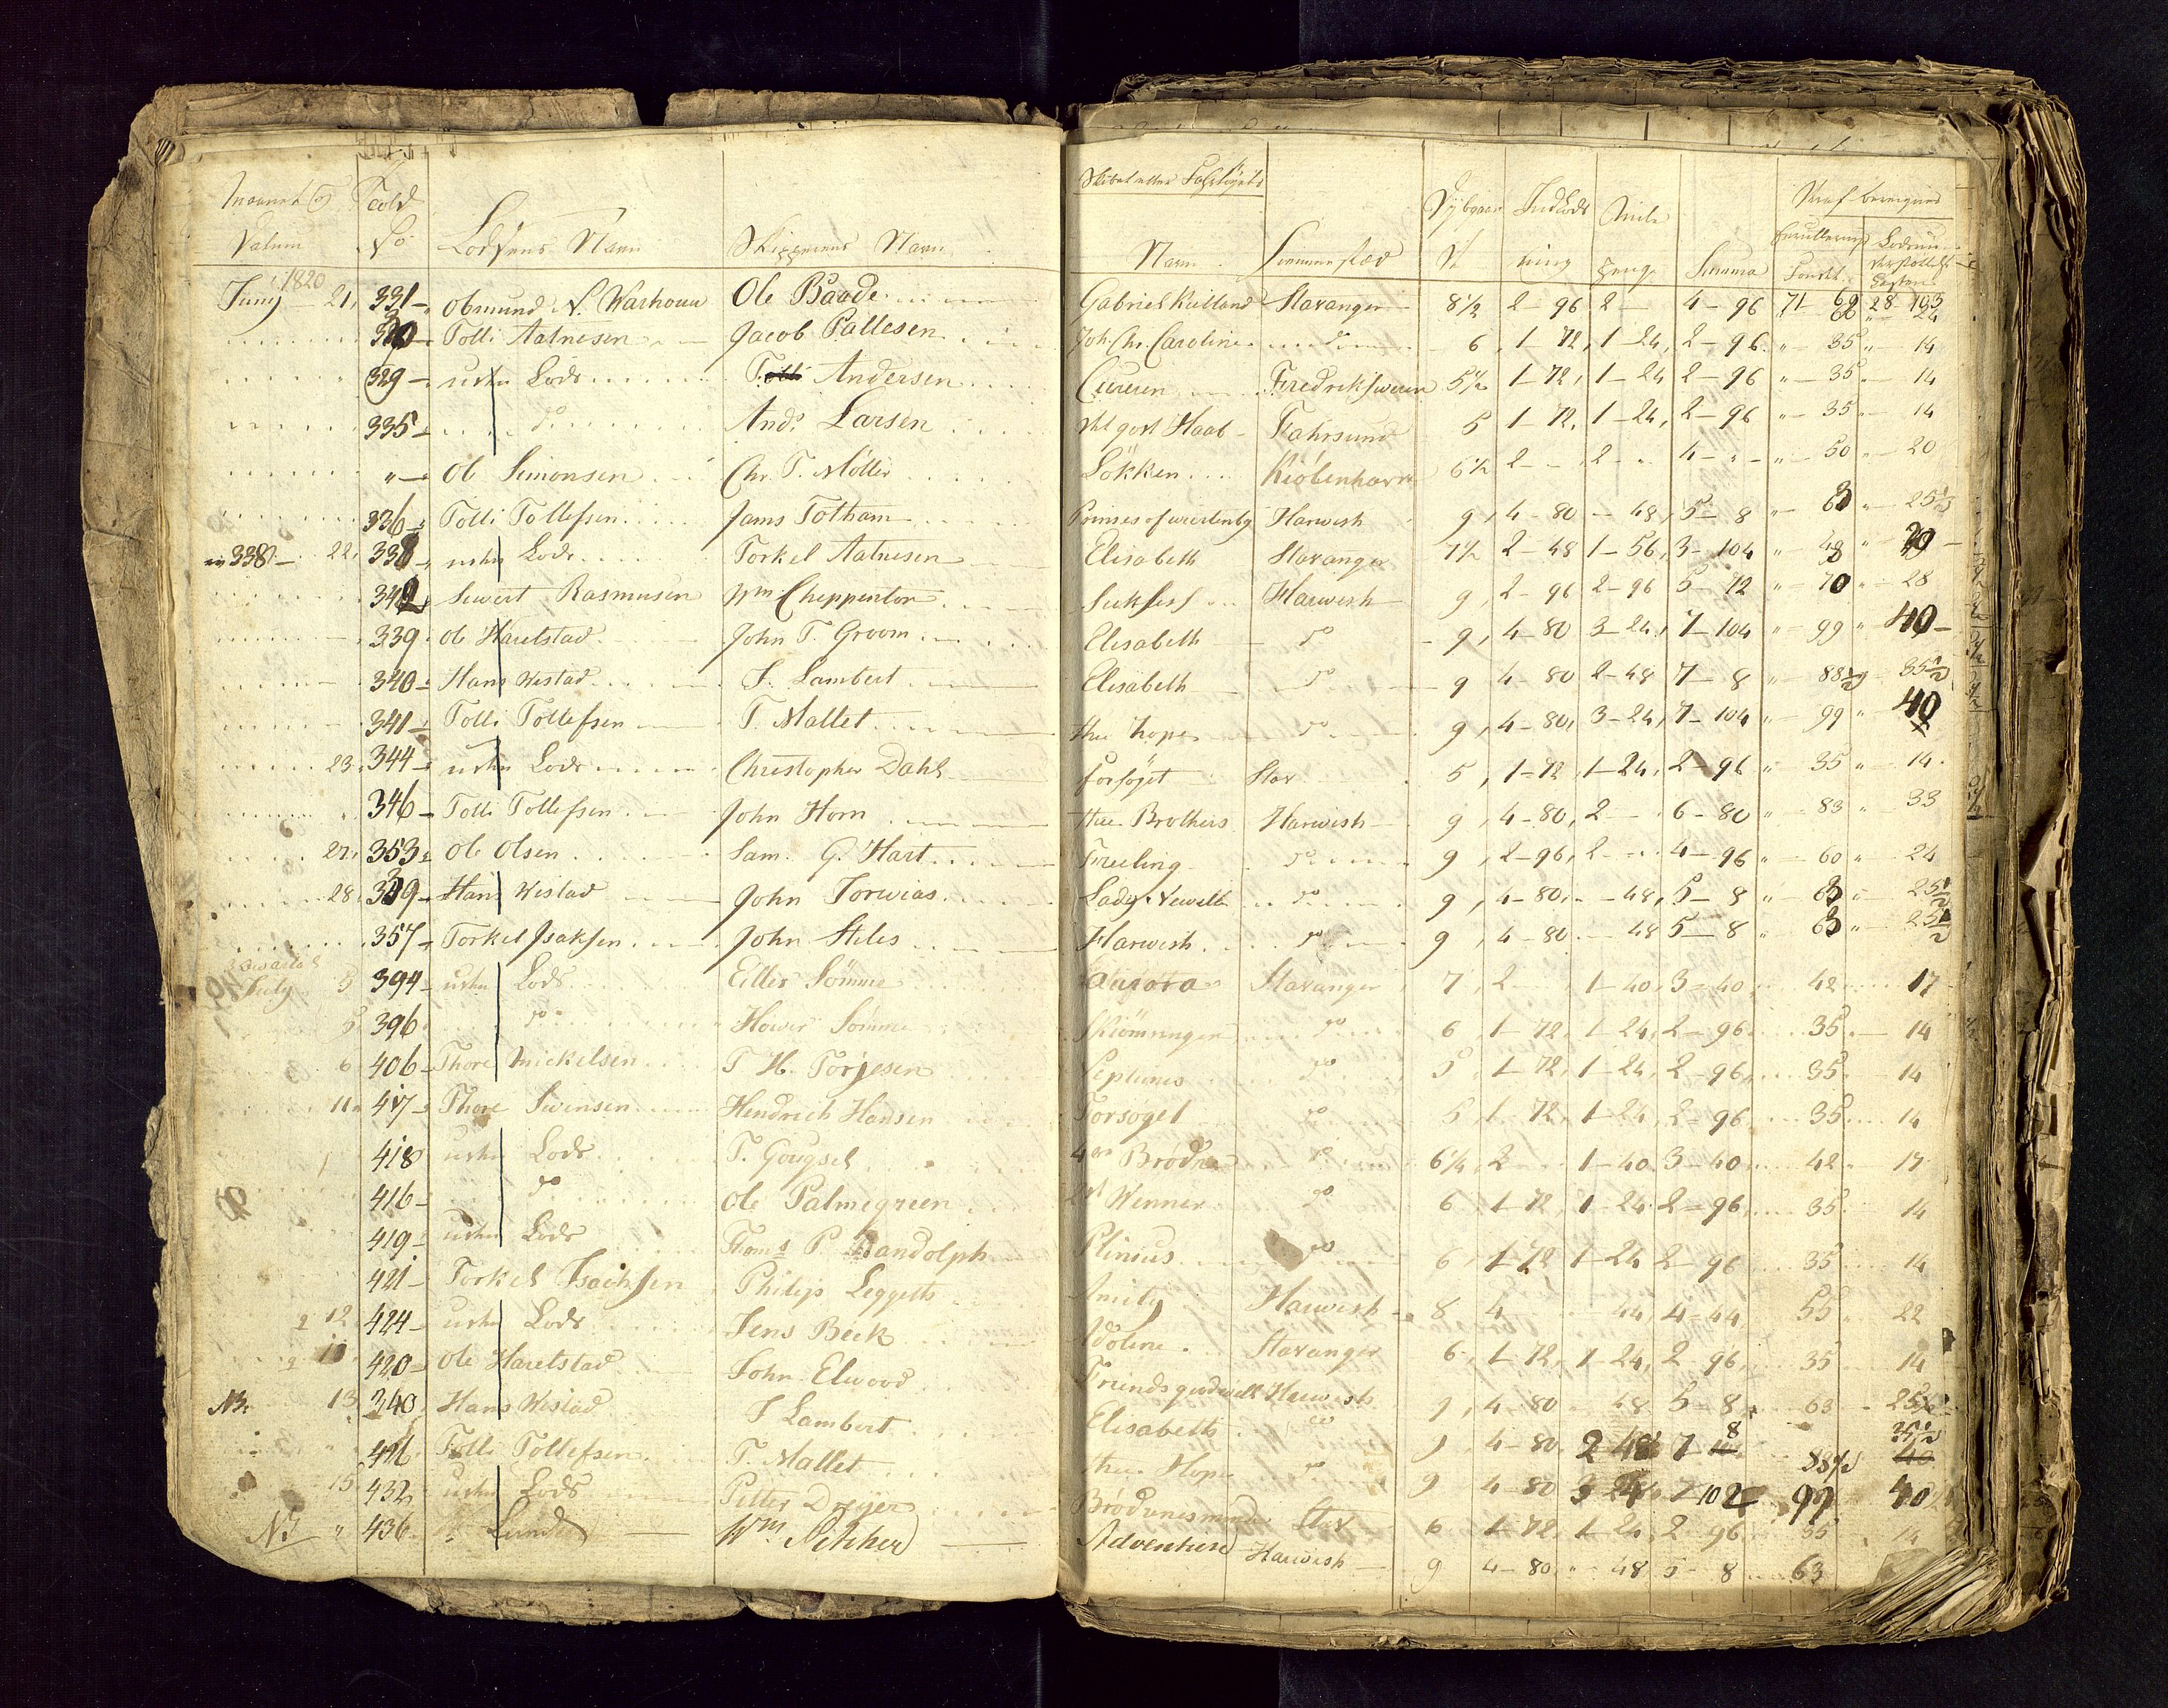 Maaned og Datum Told No Lodsens Navn Skipperens Navn Skibet eller Fartøjets Navn Hiemmestæd Dybgaaende Indlods ning Penge Summa
1820 Juny 21 331 Obmund N. Warhoue Ole Baade Gabriel Kielland Stavanger 8½ 2-96 2 4-96 71 28 103
330 Tolli Aatnesen Jacob Pallesen Joh. Chr. Caroline do 6 1-72 1-24 2-96 " 35 " 14
329 usken Lods Andersen Fredriksværn 5½ 1-72 1-24 2-96 " 35 " 14
335 do Ands Larsen det god Haab Fahrsund 5 1-72 1-24 2-96 " 35 " 14
" Ole Simonsen Chr. T. Møller Løkken Kiøbenhavn 6½ 2 2 4 " 50 " 20
336 Tolli Tollefsen Jams Totham Harwish 9 4-80 48 5-8 " 63 " 25½
338 22 338 usken Lods Torkel Aatnesen Elisabeth Stavanger 7½ 2-48 1-56 3-104 " 48 " 20
342 Siwert Rasmusen Wm Cheppenton Sukses Harwish 9 2-96 2-96 5-72 " 70 " 28
339 Ole Harelstad John T. Groom Elisabeth do 9 4-80 3-24 7-104 " 99 " 40
340 Hans Wistad J. Lambert Elisabeth do 9 4-80 2-48 7-8 " 88½ 35½
341 Tolli Tollefsen T. Mallet thee hope do 9 4-80 3-24 7-104 " 99 " 40
23 344 usken Lods Christopher Dahl forsøget Stav 5 1-72 1-24 2-96 " 35 " 14
346 Tolli Tollefsen John Horn thee Brothers Harwish 9 4-80 2 6-80 " 83 " 33
27 353 Ole Olsen Sam. G. Hart Freeling do 9 2-96 2 4-96 " 60 " 24
28 359 Hans Wistad John Torwias Lady Newell do 9 4-80 48 5-8 " 63 " 25½
357 Torkel Isaksen John Stiles Harwish do 9 4-80 48 5-8 " 63 " 25½
July 3 394 usken Lods Eiller Sømme aurora Stavanger 7 2 1-40 3-40 42 17
5 396 do Hower Sømme Skiømningen do 6 1-72 1-24 2-96 35 14
6 406 Thore Mickelsen T H. Torjesen Neptunus do 5 1-72 1-24 2-96 35 14
11 417 Thore Swensen Hendrich Hansen Forsøget do 5 1-72 1-24 2-96 35 14
418 usken Lods T. Gougsel 4re Brødre do 6¼ 2 1-40 3-40 42 17
416 do Ole Palmegreen Wenner do 6 1-72 1-24 2-96 35 14
419 usken Lods Thoms P. Randolph Plinius do 6 1-72 1-24 2-96 35 14
421 Torkel Isachsen Philip Leggeth Amity Harwish 8 4 44 4-44 55 22
12 424 usken Lods Jens Beck Adoline Stavanger 6 1-72 1-24 2-96 35 14
420 Ole Harelstad John Elwood Friends goodwill Harwish 9 4-80 48 5-8 63 25½
NB 13 340 Hans Wistad J Lambert Elisabeth do 9 4-80 2 48 7 8 88½ 35½
426 Tolli Tollefsen T. Mallet thee Hope do 9 4-80 3 24 7 102 99 40
15 432 usken Lods Petter Dreyer Brødrenes minde Stav 6 1-72 1-24 2-96 35 14
NB " 436 Lunde Wm Pitcher Adventure Harwish 9 4-80 48 5-8 63